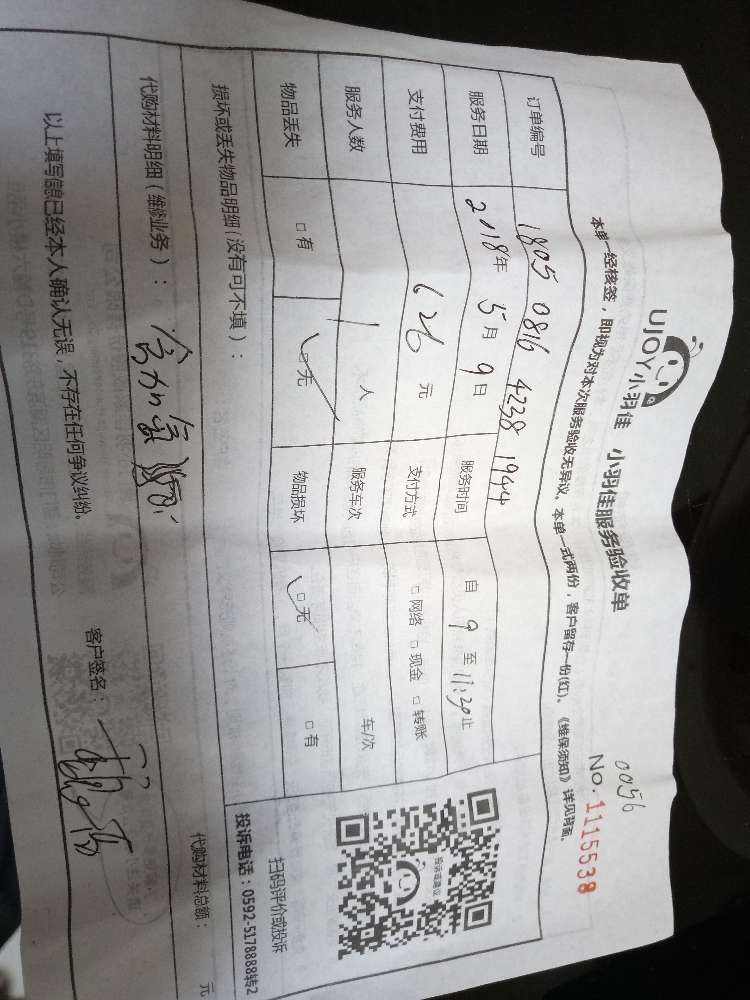 UJOY小羽佳 小羽佳服务验收单
0056
NO.1115538
本单一经核签，即视为对本次服务验收无异议。本单一式两份，客户留存一份(红)。《维保须知》详见背面。
订单编号 1805 0816 4238 1944
服务日期 2018年 5月 9日 服务时间 自 9 至 11:30止
支付费用 元 支付方式 □网络 □现金 □转账
服务人数 1 人 服务车次 车/次
物品丢失 □有 □无 物品损坏 □无 □有
投诉或建议
扫码评价或投诉
投诉电话：0592-5178888转2
损坏或丢失物品明细(没有可不填)：
代购材料明细（维修业务）：
代购材料总额： 元
以上填写信息已经本人确认无误，不存在任何争议纠纷。
客户签名：